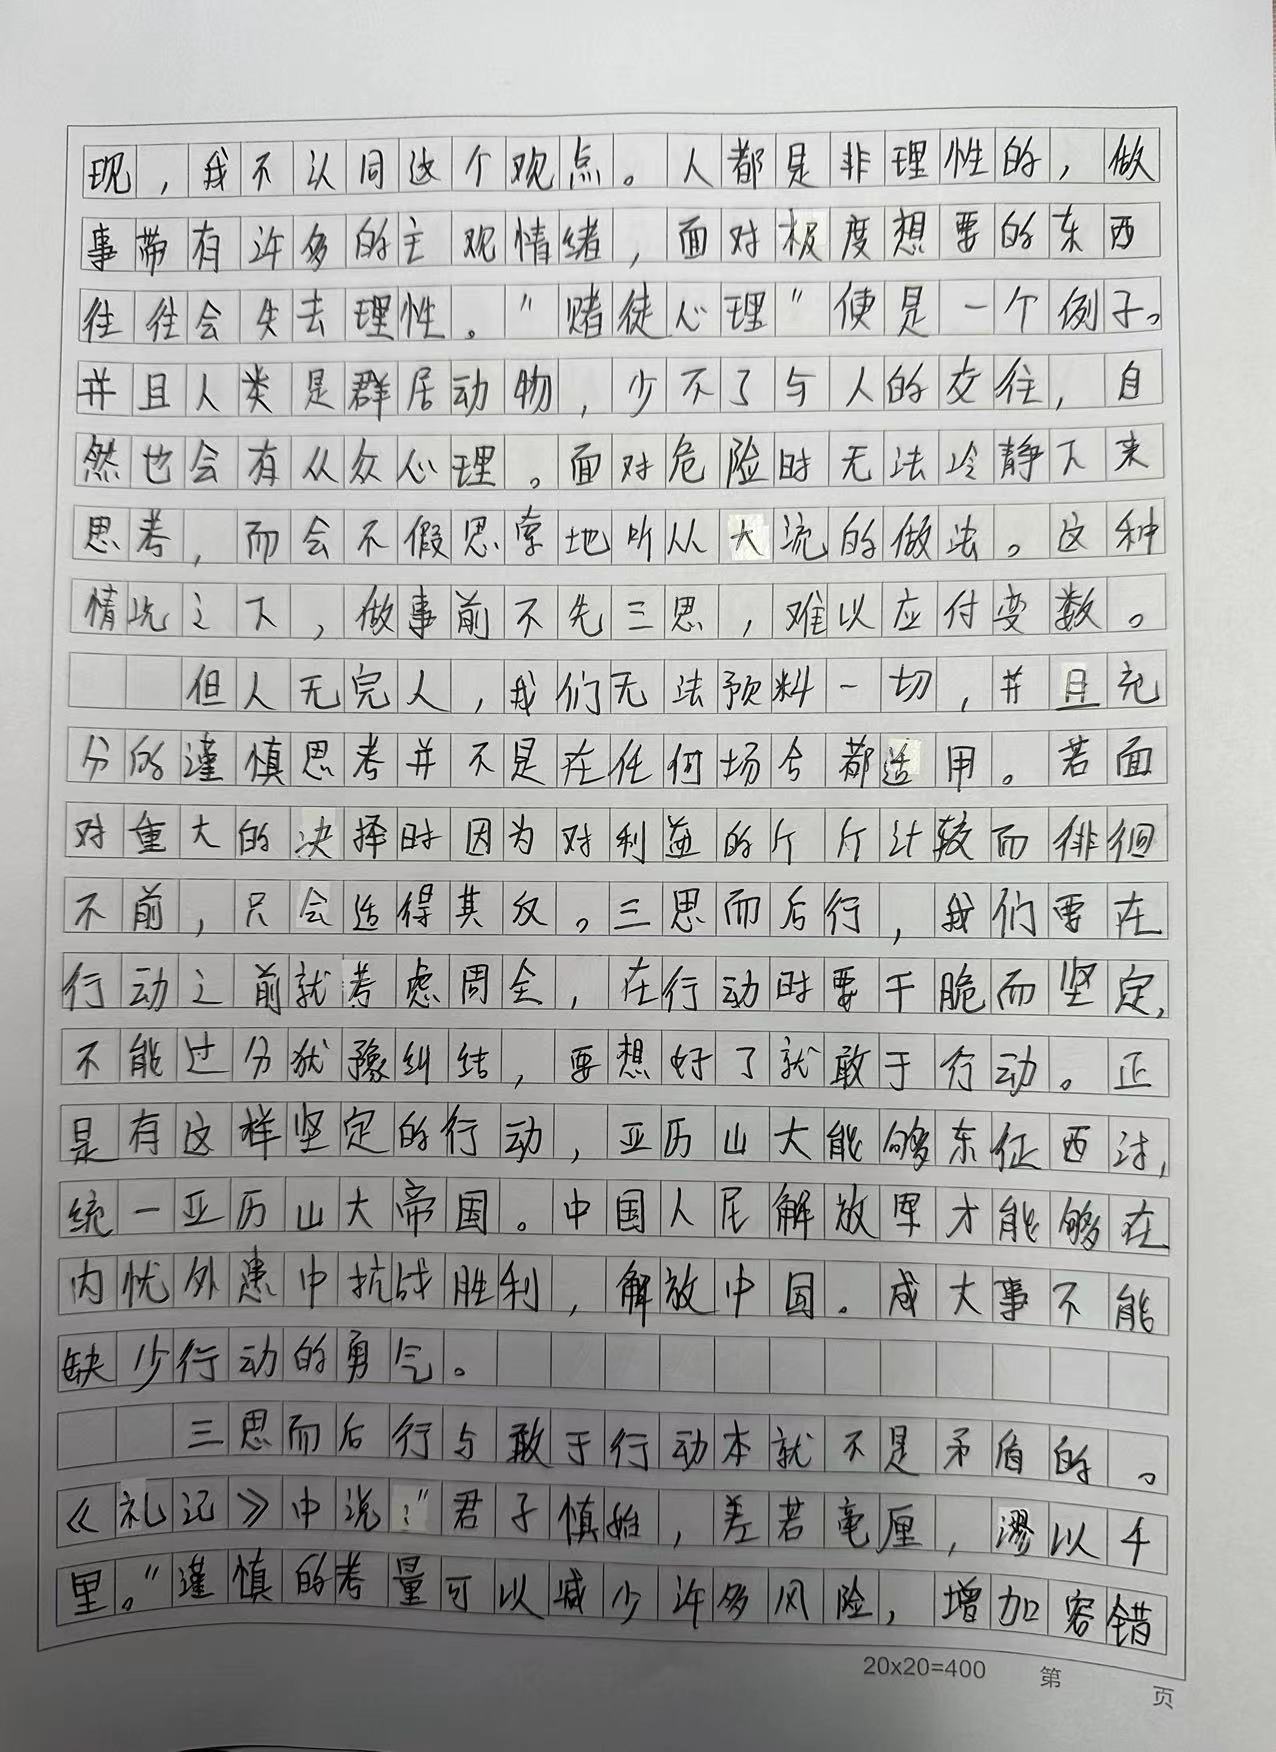 现，我不认同这个观点。人都是非理性的，做
事带有许多的主观情绪，面对极度想要的东西
往往会失去理性。"赌徒心理"便是一个例子。
并且人类是群居动物，少不了与人的交往，自
然也会有从众心理。面对危险时无法冷静下来
思考，而会不假思索地听从大流的做法。这种
情况之下，做事前不先三思，难以应付变数。
但人无完人，我们无法预料一切，并且充
分的谨慎思考并不是在任何场合都适用。若面
对重大的决择时因为对利益的斤斤计较而徘徊
不前，只会适得其反。三思而后行，我们要在
行动之前就考虑周全，在行动时要干脆而坚定，
不能过分犹豫纠结，要想好了就敢于行动。正
是有这样坚定的行动，亚历山大能够东征西讨，
统一亚历山大帝国。中国人民解放军才能够在
内忧外患中抗战胜利，解放中国。成大事不能
缺少行动的勇气。
三思而后行与敢于行动本就不是矛盾的。
《礼记》中说："君子慎始，差若毫厘，谬以千
里。"谨慎的考量可以减少许多风险，增加容错
20x20=400 第 页